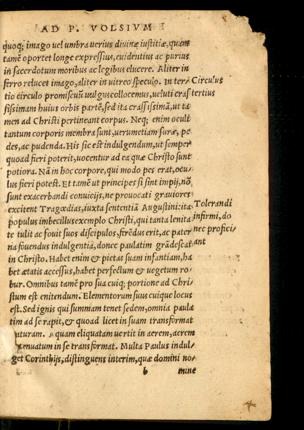 AD P. VOLSIVM
quoq; imago uel umbra uerius diuinæ iustitiæ, quam
tamē oportet longe expressius, euidentius ac purius
in sacerdotum moribus ac legibus elucere. Aliter in
ferro relucet imago, aliter in uitreo speculo. In ter
Circulus
tio circulo promiscuū uulgus collocemus, ueluti cras
tertius
sissimam huius orbis partē, sed ita crassissimā, ut ta
men ad Christi pertineant corpus. Neq; enim oculi
tantum corporis membra sunt, uerumetiam suræ, pe
des, ac pudenda. His sic est indulgendum, ut semper
quoad fieri poterit, uocentur ad ea quæ Christo sunt
potiora. Nā in hoc corpore, qui modo pes erat, ocu
lus fieri potest. Et tamē ut principes si sint impij, nō
sunt exacerbandi conuicijs, ne prouocati grauiores
excitent Tragœdias, iuxta sententiā Augustini: ita
Tolerandi
populus imbecillus exemplo Christi, qui tanta lenita
infirmi, do
te tulit ac fouit suos discipulos, ferēdus erit, ac pater
nec profici
na fouendus indulgentia, donec paulatim grādescat
ant
in Christo. Habet enim & pietas suam infantiam, ha
bet ætatis accessus, habet perfectum & uegetum ro
bur. Omnibus tamē pro sua cuiq; portione ad Chri
stum est enitendum. Elementorum suus cuique locus
est. Sed ignis qui summam tenet sedem, omnia paula
tim ad se rapit, & quoad licet in suam transformat
naturam. aquam eliquatam uertit in aerem, aerem
tenuatum in se transformat. Multa Paulus indul
get Corinthijs, distinguens interim, quæ domini no
b mine